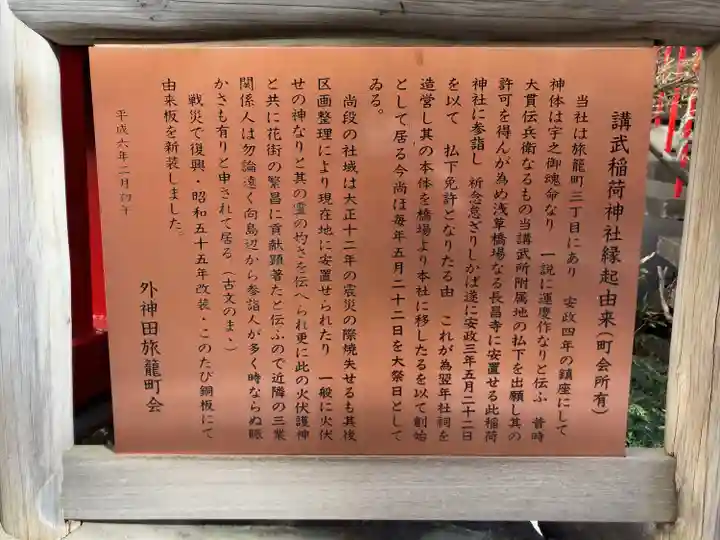 講武稲荷神社縁起由来(町会所有)
当社は旅籠町三丁目にあり 安政四年の鎮座にして
神体は宇之御魂命なり 一説に運慶作なりと伝ふ 昔時
大貫伝兵衛なるもの当講武所附属地の払下を出願し其の
許可を得んが為め浅草橋場なる長昌寺に安置せる此稲荷
神社に参詣し 祈念怠ざりしかば遂に安政三年五月二十二日
を以て 払下免許となりたる由 これが為翌年社祠を
造営し其の本体を橋場より本社に移したるを以て創始
として居る今尚ほ毎年五月二十二日を大祭日として
ゐる。
尚段の社域は大正十二年の震災の際焼失せるも其後
区画整理により現在地に安置せられたり 一般に火伏
せの神なりと其の霊の灼さを伝へられ更に此の火伏護神
と共に花街の繁昌に貢献顕著たと伝ふので近隣の三業
関係人は勿論遠く向島辺から参詣人が多く時ならぬ賑
かさも有りと申されて居る(古文のまゝ)
戦災で復興・昭和五十五年改装・このたび銅板にて
由来板を新装しました。
平成六年二月初午
外神田旅籠町会